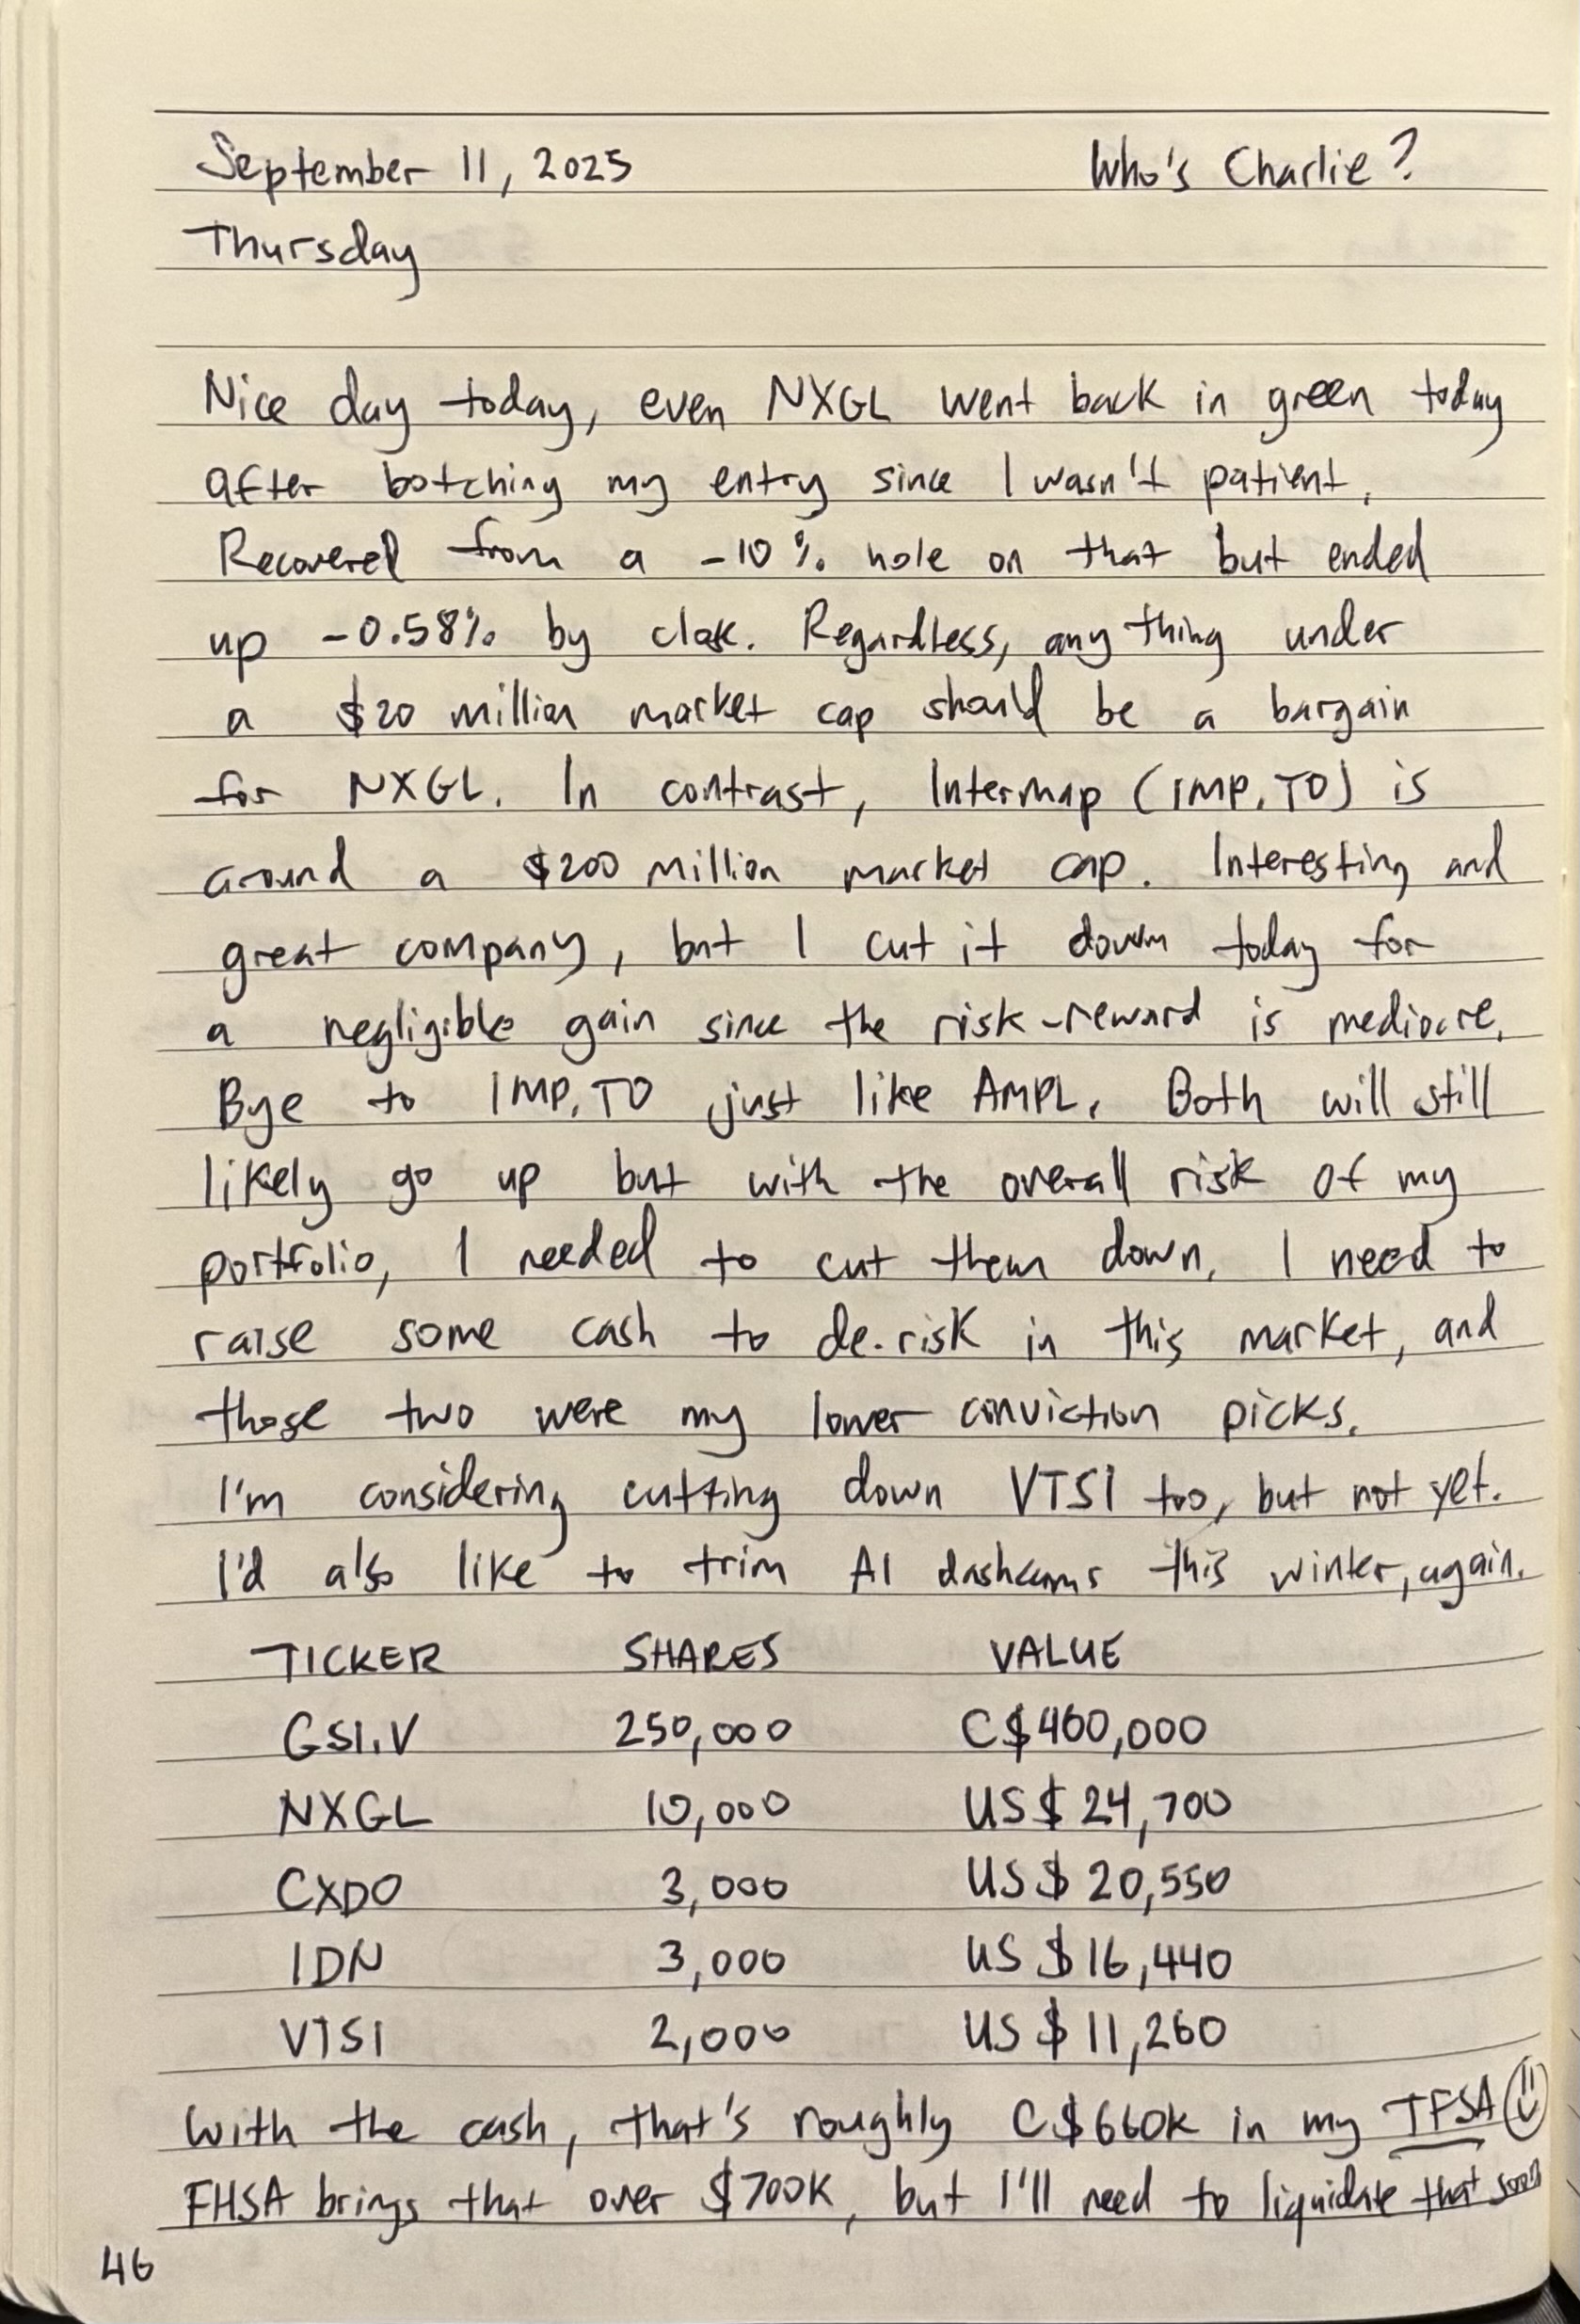 September 11, 2025 Who's Charlie?
Thursday
Nice day today, even NXGL went back in green today
after botching my entry since I wasn't patient.
Recovered from a -10% hole on that but ended
up -0.58% by close. Regardless, anything under
a $20 million market cap should be a bargain
for NXGL. In contrast, Intermap (IMP.TO) is
around a $200 million market cap. Interesting and
great company, but I cut it down today for
a negligible gain since the risk-reward is mediocre.
Bye to IMP.TO just like AMPL. Both will still
likely go up but with the overall risk of my
portfolio, I needed to cut them down. I need to
raise some cash to de-risk in this market, and
those two were my lower conviction picks.
I'm considering cutting down VTSI too, but not yet.
I'd also like to trim AI dashcams this winter, again.
TICKER SHARES VALUE
GSI.V 250,000 C$460,000
NXGL 10,000 US$24,700
CXDO 3,000 US$20,550
IDN 3,000 US$16,440
VTSI 2,000 US$11,260
With the cash, that's roughly C$660K in my TFSA
FHSA brings that over $700K, but I'll need to liquidate that soon
46